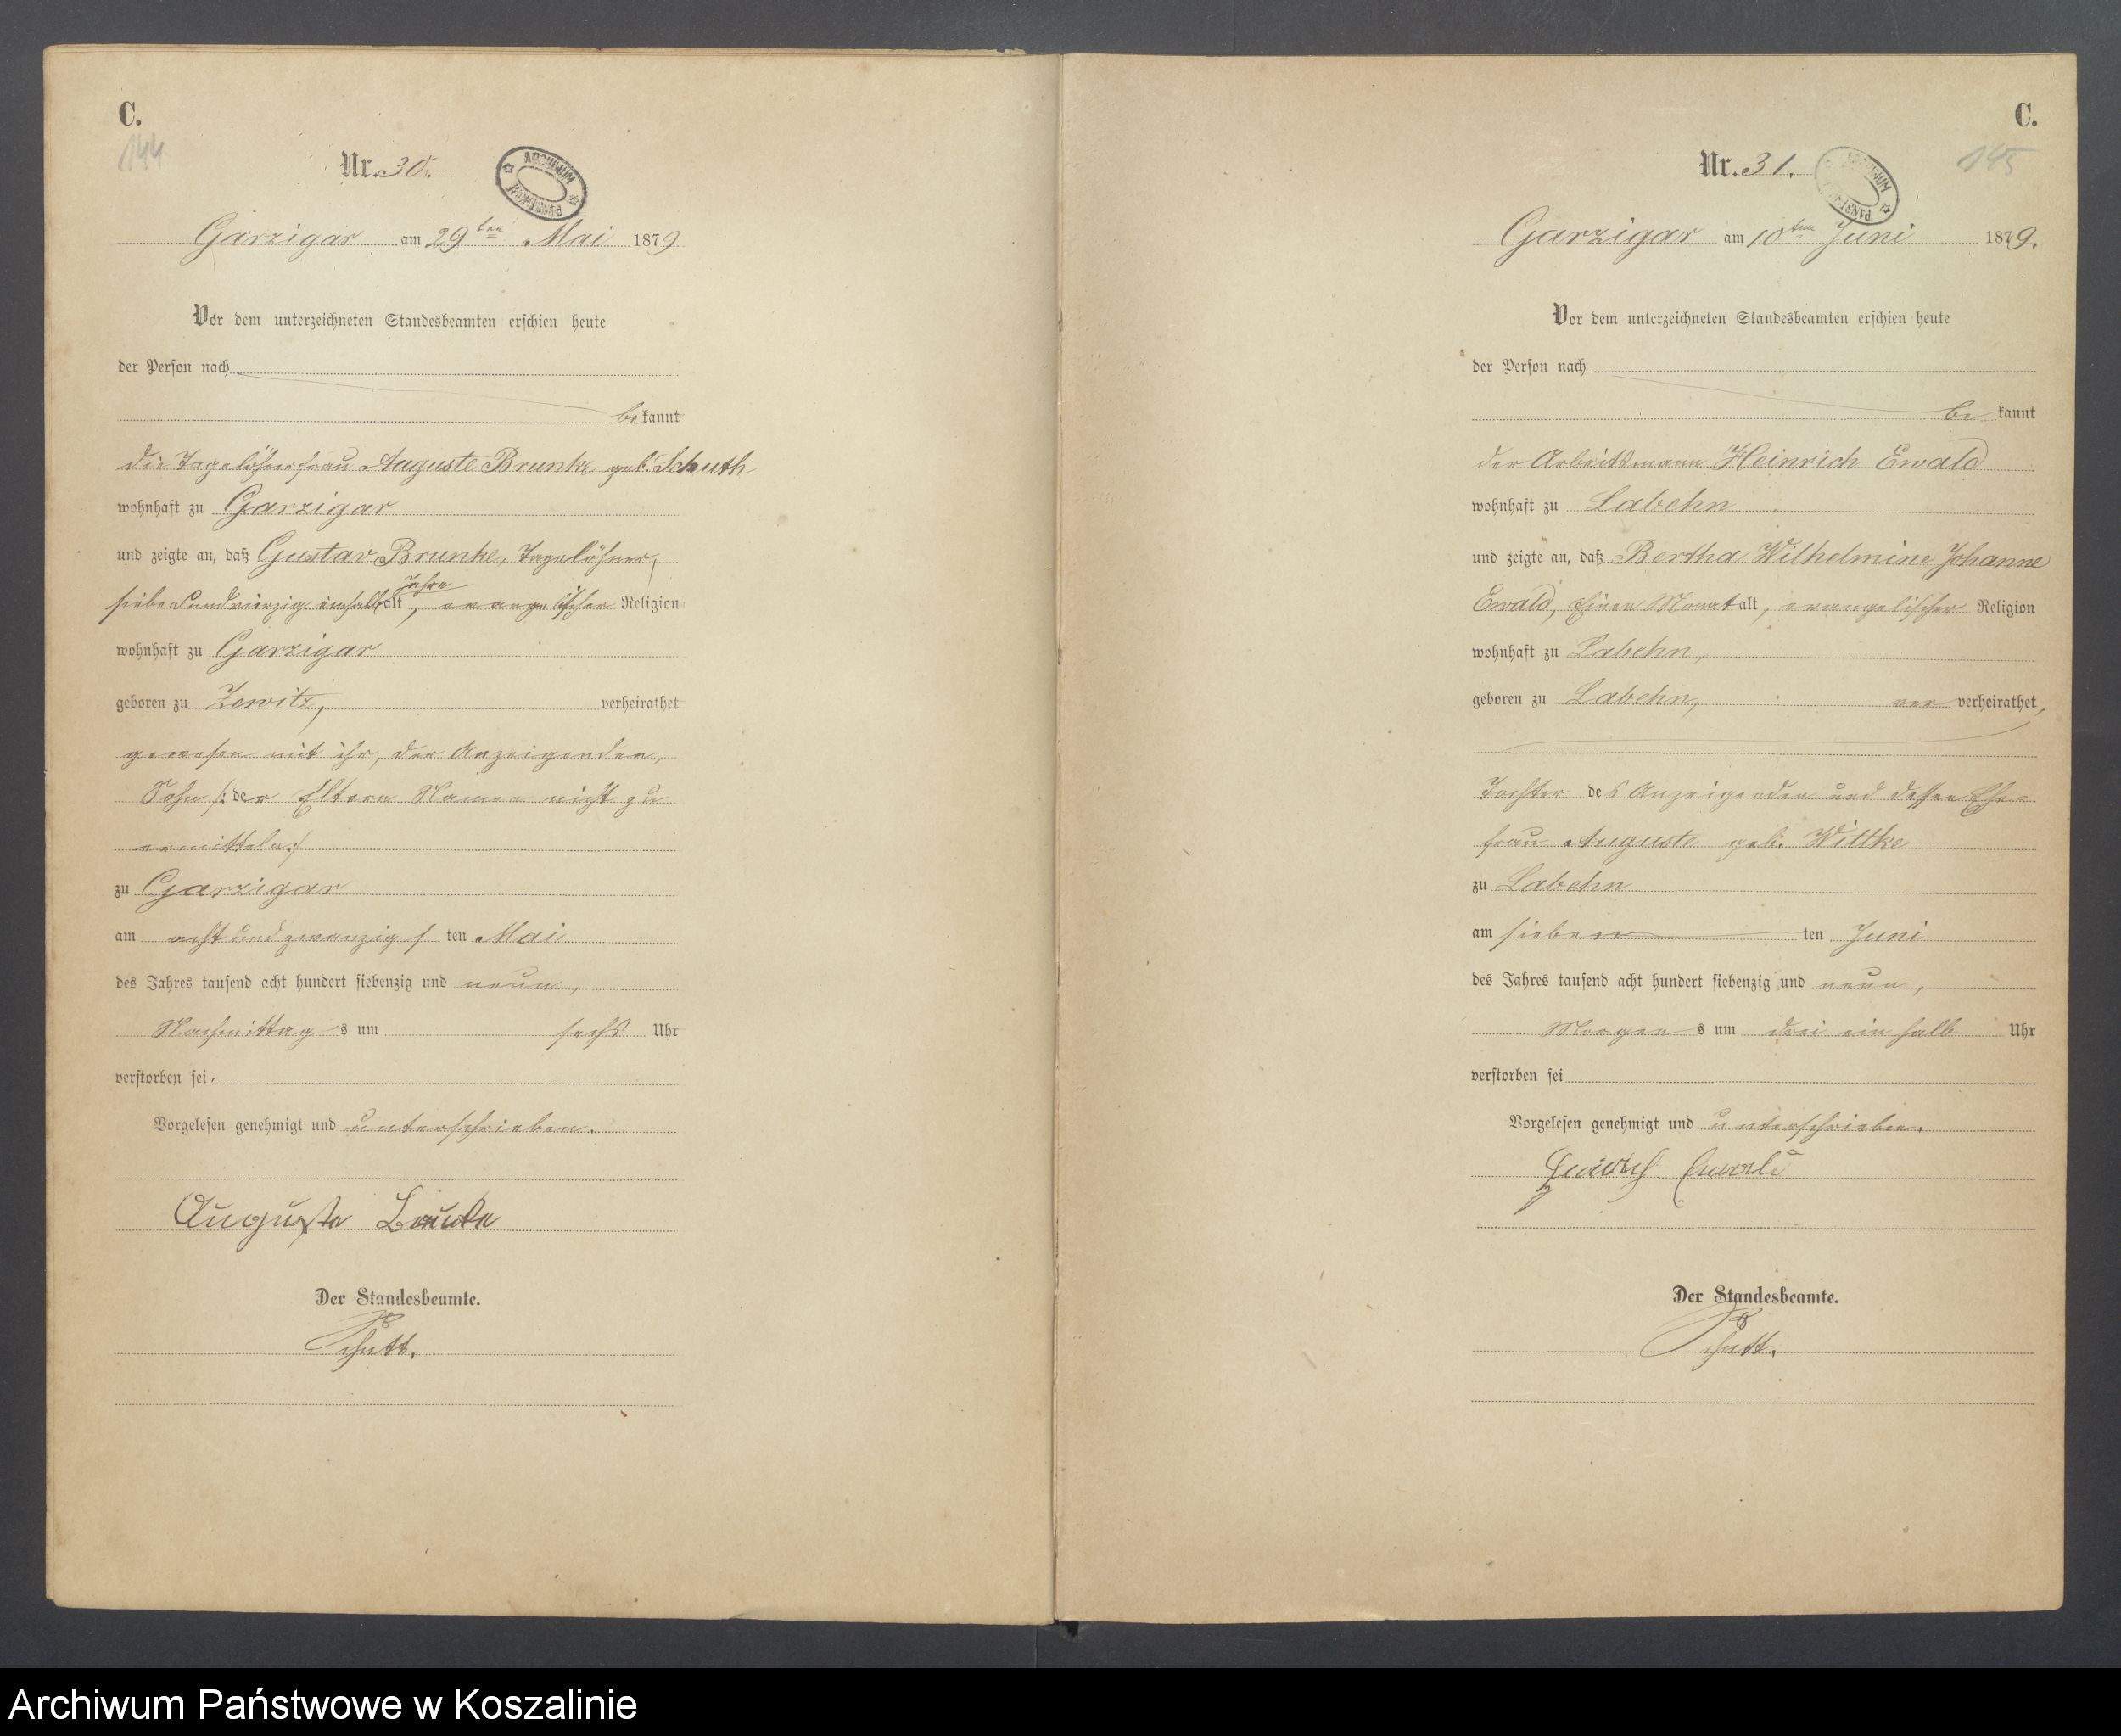 C.
144
Nr. 30.
ARCHIWUM PAŃSTWOWE
Garzigar am 29ten Mai 1879
Vor dem unterzeichneten Standesbeamten erschien heute
der Person nach
bekannt
die Tagelöhnerfrau Auguste Brunke geb. Schuth
wohnhaft zu Garzigar
und zeigte an, daß Gustav Brunke, Tagelöhner,
Jahre
sieben und vierzig einhalb alt, evangelischer Religion
wohnhaft zu Garzigar
geboren zu Zewitz, verheirathet
gewesen mit ihr, der Anzeigenden,
Sohn /: der Eltern Namen nicht zu
ermitteln :/
zu Garzigar
am acht und zwanzig s ten Mai
des Jahres tausend acht hundert siebenzig und neun,
Nachmittag s um sechs Uhr
verstorben sei.
Vorgelesen genehmigt und unterschrieben.
Auguste Brunke
Der Standesbeamte.
Schutt.
C.
145
Nr. 31.
ARCHIWUM PAŃSTWOWE
Garzigar am 10ten Juni 1879.
Vor dem unterzeichneten Standesbeamten erschien heute
der Person nach
be kannt
der Arbeitsmann Heinrich Ewald
wohnhaft zu Labehn
und zeigte an, daß Bertha Wilhelmine Johanne
Ewald, Einen Monat alt, evangelischer Religion
wohnhaft zu Labehn,
geboren zu Labehn, verheirathet,
Tochter des Anzeigenden und dessen Ehe=
frau Auguste geb. Wittke
zu Labehn
am sieben ten Juni
des Jahres tausend acht hundert siebenzig und neun,
Morgen s um drei ein halb Uhr
verstorben sei
Vorgelesen genehmigt und unterschrieben.
Heinrich Ewald
Der Standesbeamte.
Schutt.
Archiwum Państwowe w Koszalinie